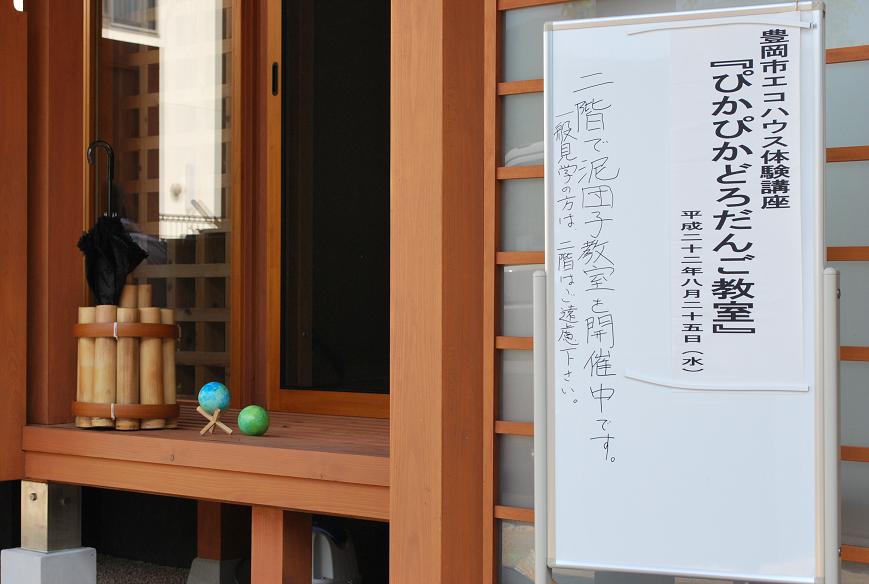 豊岡市エコハウス体験講座
『ぴかぴかどろだんご教室』
平成二十二年八月二十五日（水）
二階で泥団子教室を開催中です。
一般見学の方は、二階はご遠慮下さい。